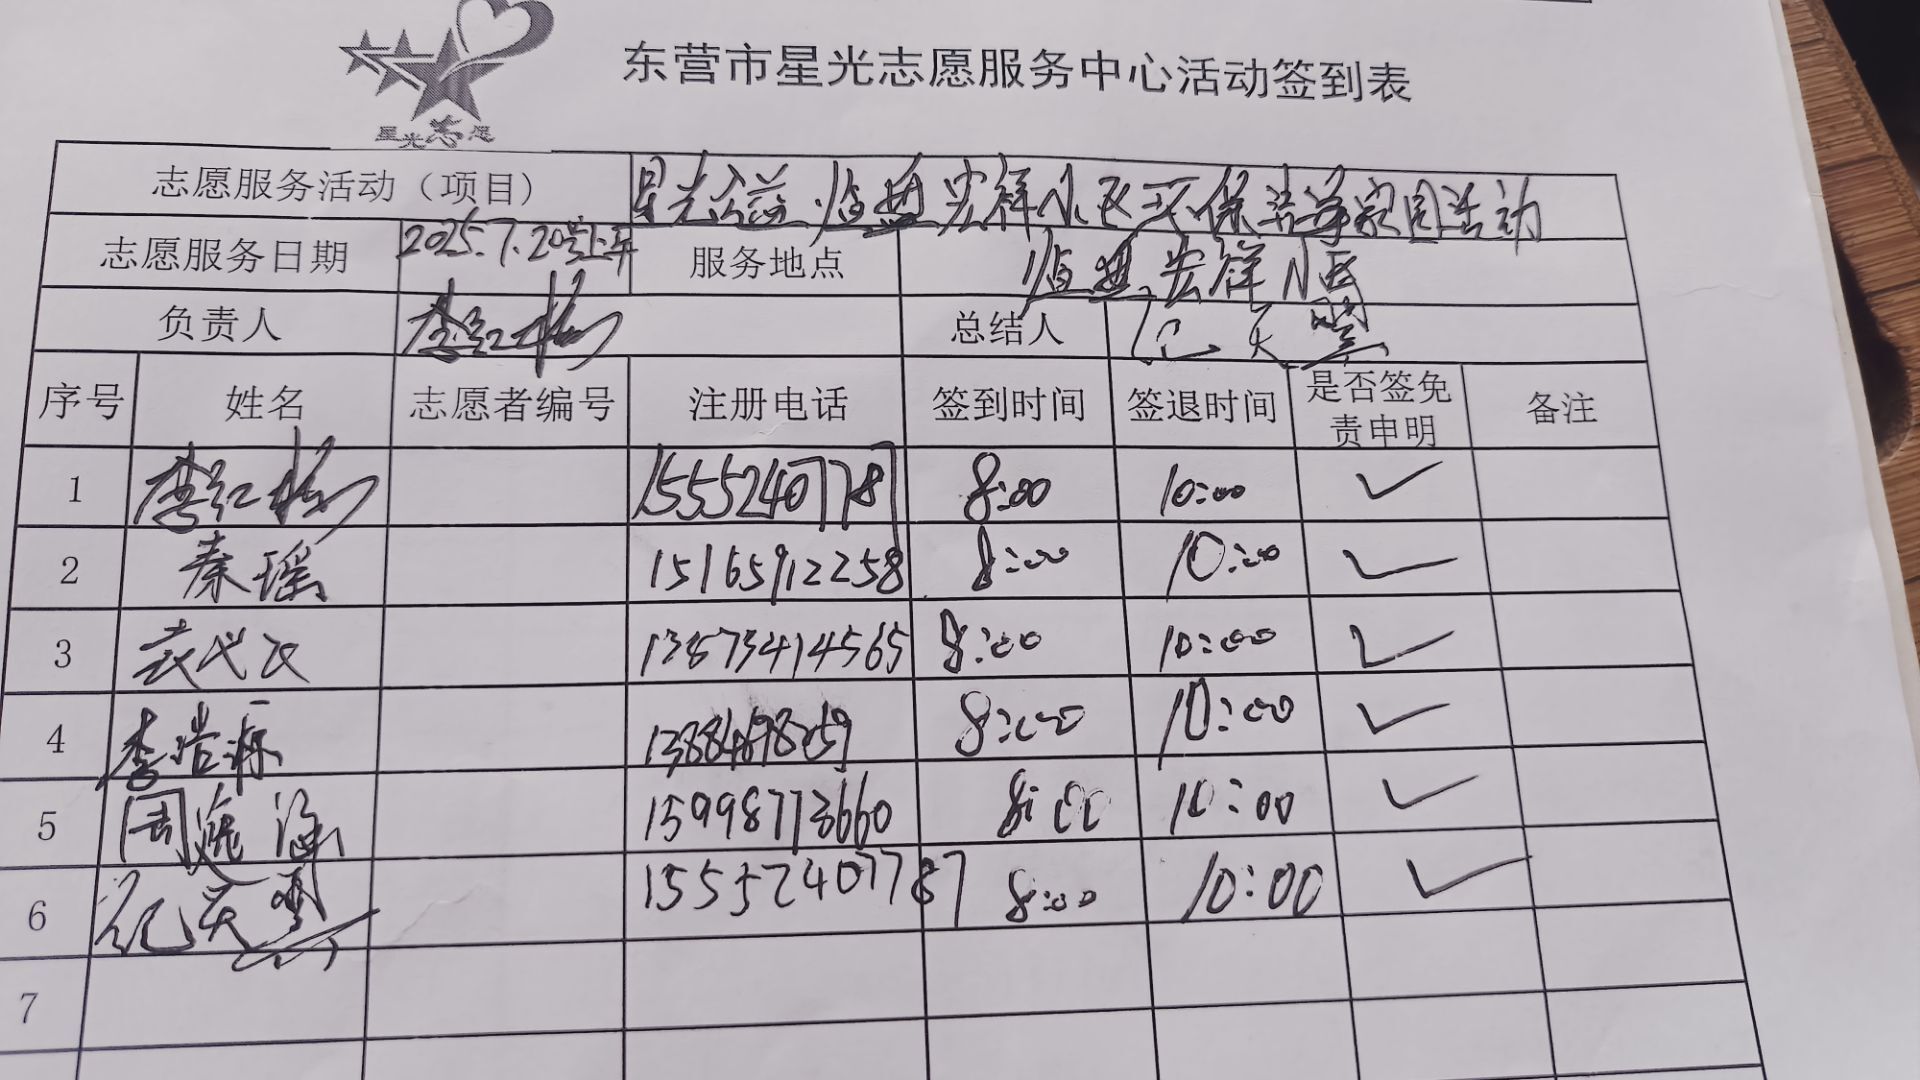 星光志愿
东营市星光志愿服务中心活动签到表
志愿服务活动（项目） 星光公益 恒典宏祥小区环保洁净家园活动
志愿服务日期 2025.7.20号上午 服务地点 宏祥小区
负责人 李红梅 总结人 纪天翼
序号 姓名 志愿者编号 注册电话 签到时间 签退时间 是否签免责申明 备注
1 李红梅 8:00 10:00 ✓
2 秦瑶 15165912258 8:00 10:00 ✓
3 13873414565 8:00 10:00 ✓
4 李浩源 8:00 10:00 ✓
5 周 涵 15998773660 8:00 10:00 ✓
6 纪天翼 15552407787 8:00 10:00 ✓
7